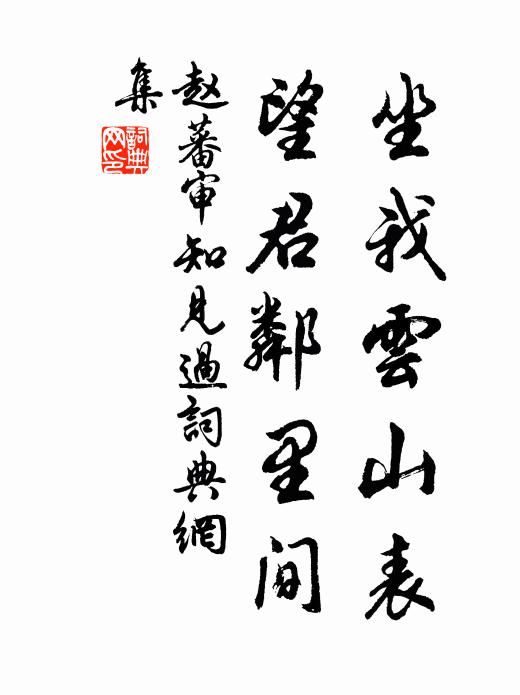 坐我雲山表
望君鄰里間
赵蕃审知見過詞典網
集
詞典網印